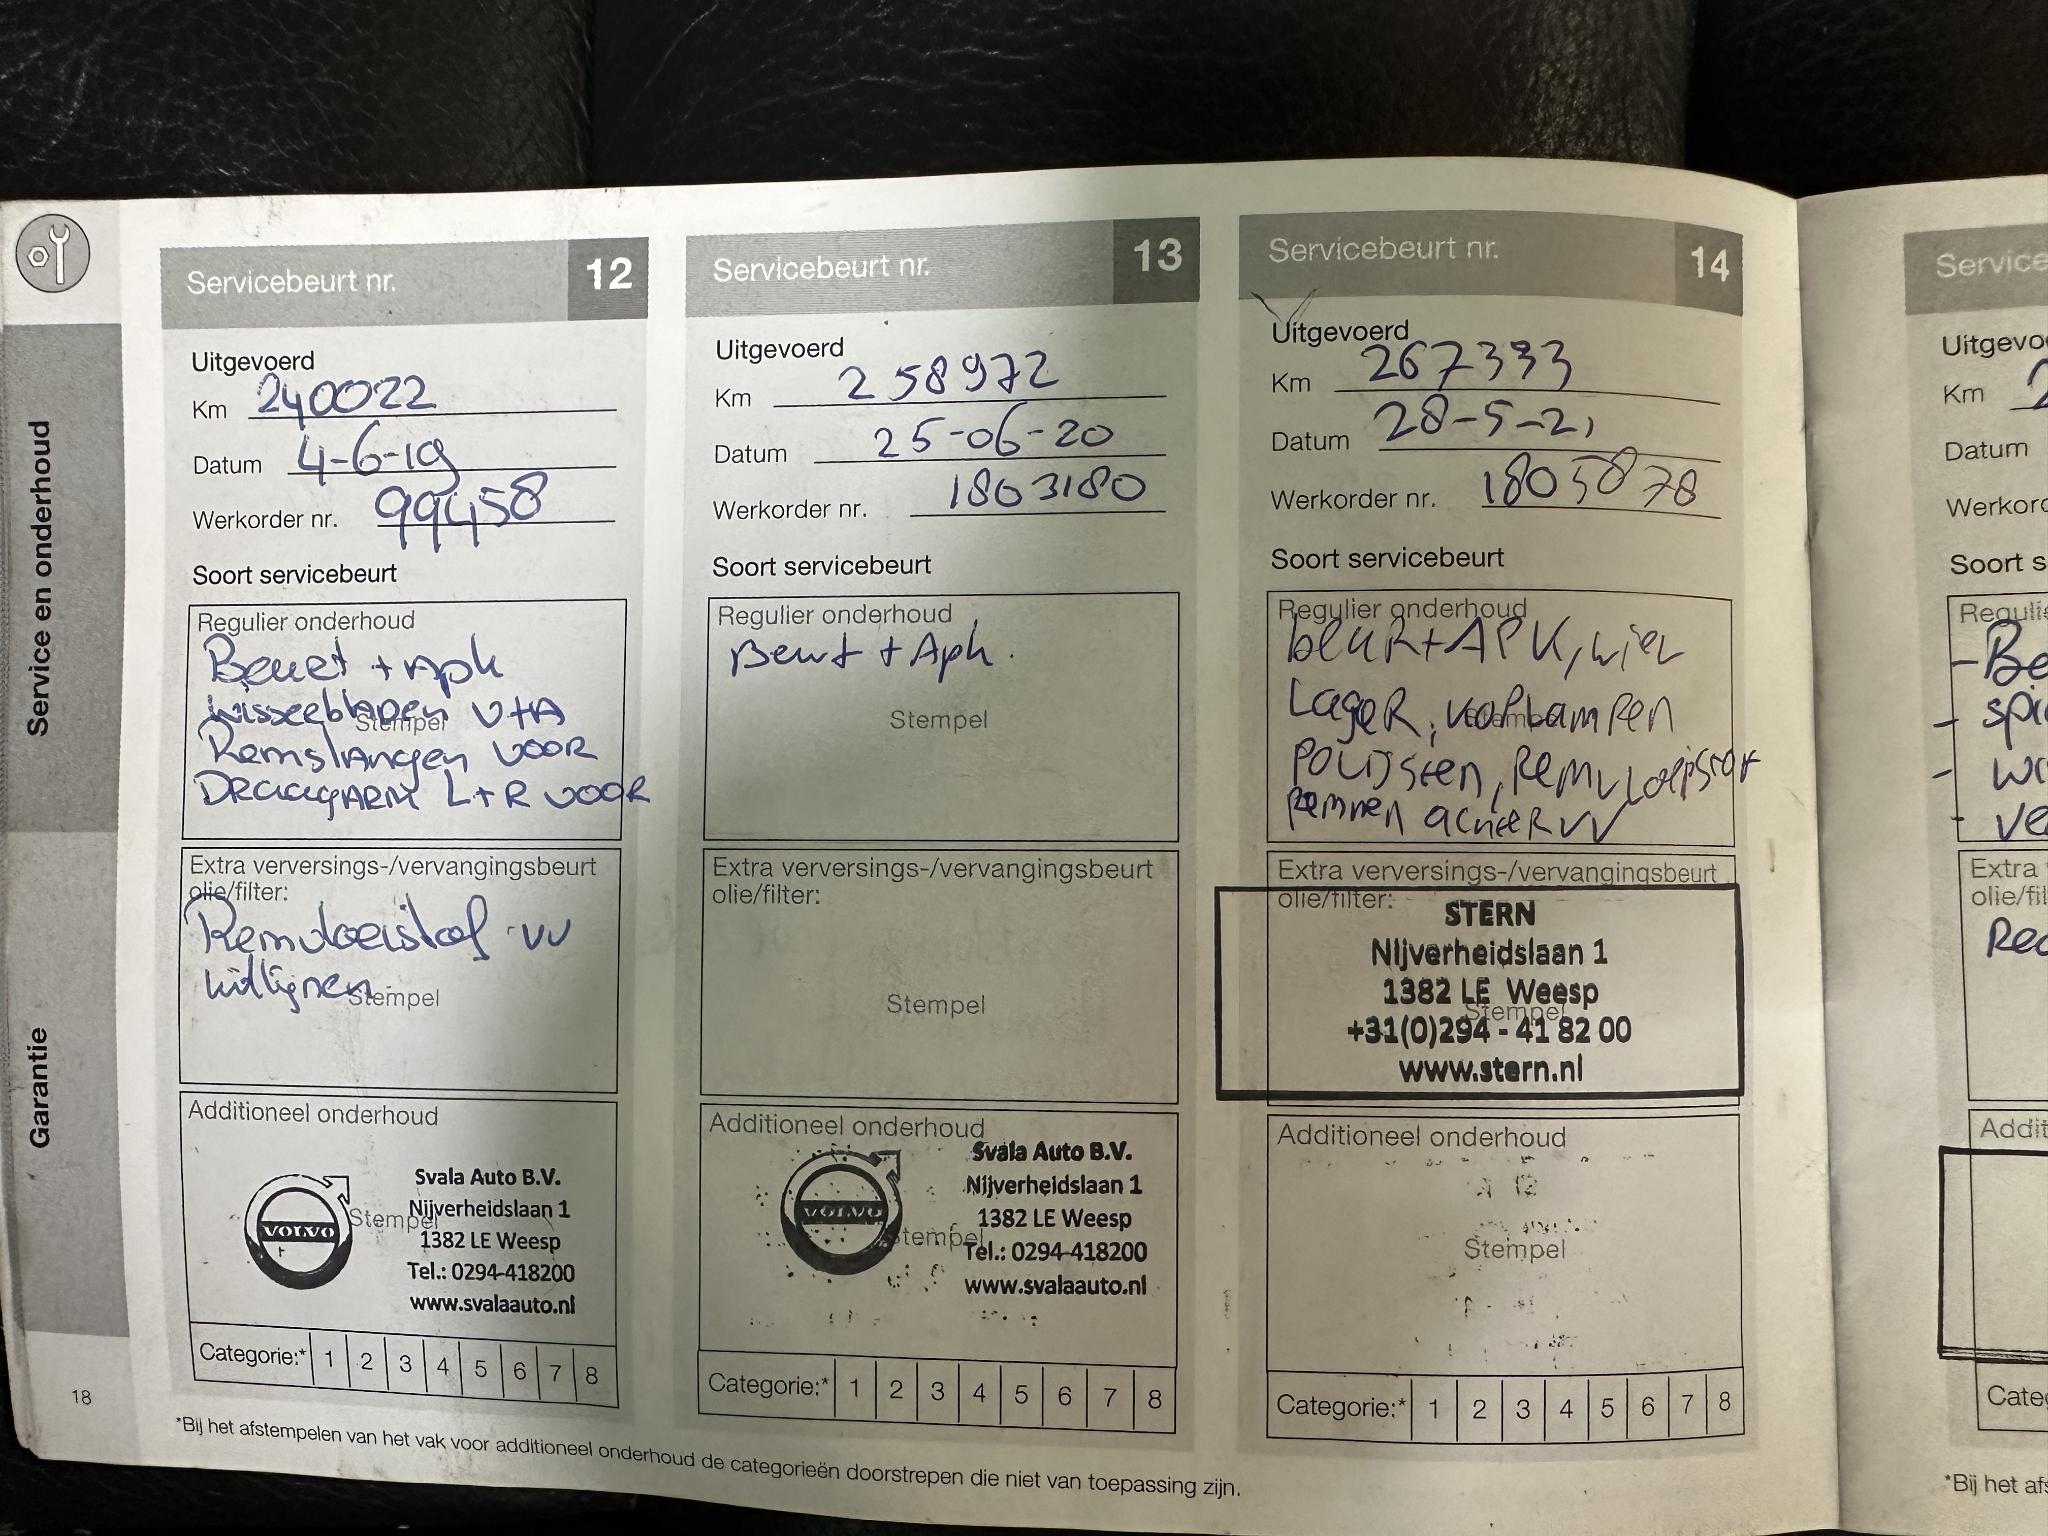 Service en onderhoud
Garantie
18
Servicebeurt nr. 12
Uitgevoerd
Km 240022
Datum 4-6-19
Werkorder nr. 99458
Soort servicebeurt
Regulier onderhoud
Beurt + Apk
wisserbladen V+A
Stempel
Remslangen voor
Draagarm L+R voor
Extra verversings-/vervangingsbeurt
olie/filter:
Remvloeistof vv
Stempel
Additioneel onderhoud
VOLVO
Stempel
Svala Auto B.V.
Nijverheidslaan 1
1382 LE Weesp
Tel.: 0294-418200
www.svalaauto.nl
Categorie:* 1 2 3 4 5 6 7 8
Servicebeurt nr. 13
Uitgevoerd
Km 258972
Datum 25-06-20
Werkorder nr. 1803180
Soort servicebeurt
Regulier onderhoud
Beurt + Apk.
Stempel
Extra verversings-/vervangingsbeurt
olie/filter:
Stempel
Additioneel onderhoud
VOLVO
Stempel
Svala Auto B.V.
Nijverheidslaan 1
1382 LE Weesp
Tel.: 0294-418200
www.svalaauto.nl
Categorie:* 1 2 3 4 5 6 7 8
Servicebeurt nr. 14
Uitgevoerd
Km 267333
Datum 28-5-21
Werkorder nr. 1805878
Soort servicebeurt
Regulier onderhoud
beurt + APK, wiel
Lager, koplampen
Stempel
polijsten, Remvloeistof
Remmen achter vv
Extra verversings-/vervangingsbeurt
olie/filter:
STERN
Nijverheidslaan 1
1382 LE Weesp
Stempel
+31(0)294 - 41 82 00
www.stern.nl
Additioneel onderhoud
Stempel
Categorie:* 1 2 3 4 5 6 7 8
*Bij het afstempelen van het vak voor additioneel onderhoud de categorieën doorstrepen die niet van toepassing zijn.
Service
Uitgevo
Km 2
Datum
Werkord
Soort s
Regulie
- Be
- spi
- wi
- ve
Extra
olie/fil
Rec
Addit
Cate
*Bij het afs